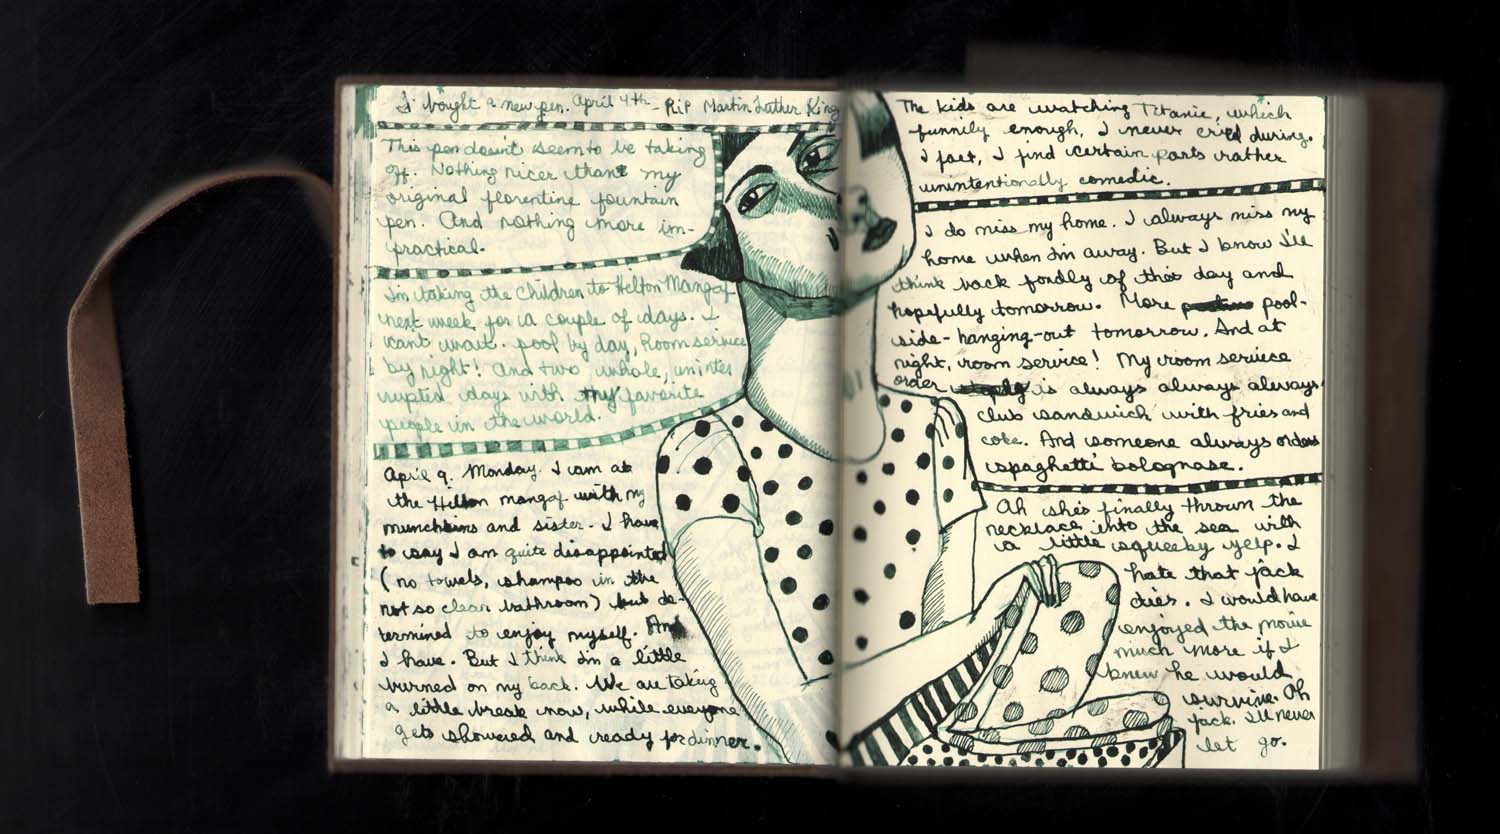 I bought a new pen. April 4th - RIP Martin Luther King
This pen doesnt seem to be taking
off. Nothing nicer than my
original florentine fountain
pen. And nothing more im-
practical.
Im taking the children to Hilton Mangaf
next week for a couple of days. I
cant wait. pool by day, Room service
by night! And two whole, uninter
rupted days with my favorite
people in the world.
April 9. Monday. I am at
the Hilton mangaf with my
munchkins and sister. I have
to say I am quite disappointed
(no towels, shampoo in the
not so clean bathroom) but de-
termined to enjoy myself. And
I have. But I think Im a little
burned on my back. We are taking
a little break now, while everyone
gets showered and ready for dinner.
The kids are watching Titanic, which
funnily enough, I never cried during.
I fact, I find certain parts rather
unintentionally comedic.
I do miss my home. I always miss my
home when Im away. But I know I'll
think back fondly of this day and
hopefully tomorrow. More pool-
side-hanging-out tomorrow. And at
night, room service! My room service
order is always always always
club sandwich with fries and
coke. And someone always orders
spaghetti bolognase.
Ah she's finally thrown the
necklace into the sea with
a little squeeky yelp. I
hate that jack
dies. I would have
enjoyed the movie
much more if I
knew he would
survive. Oh
jack. I'll never
let go.